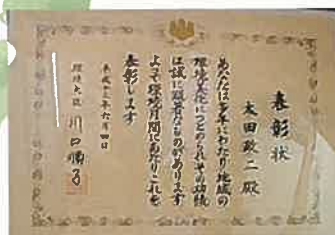 表彰状
太田政二殿
あなたは多年にわたり地域の
環境美化につとめられその功績
は誠に顕著なものがあります
よって環境月間にあたりこれを
表彰します
平成十三年六月四日
環境大臣 川口順子